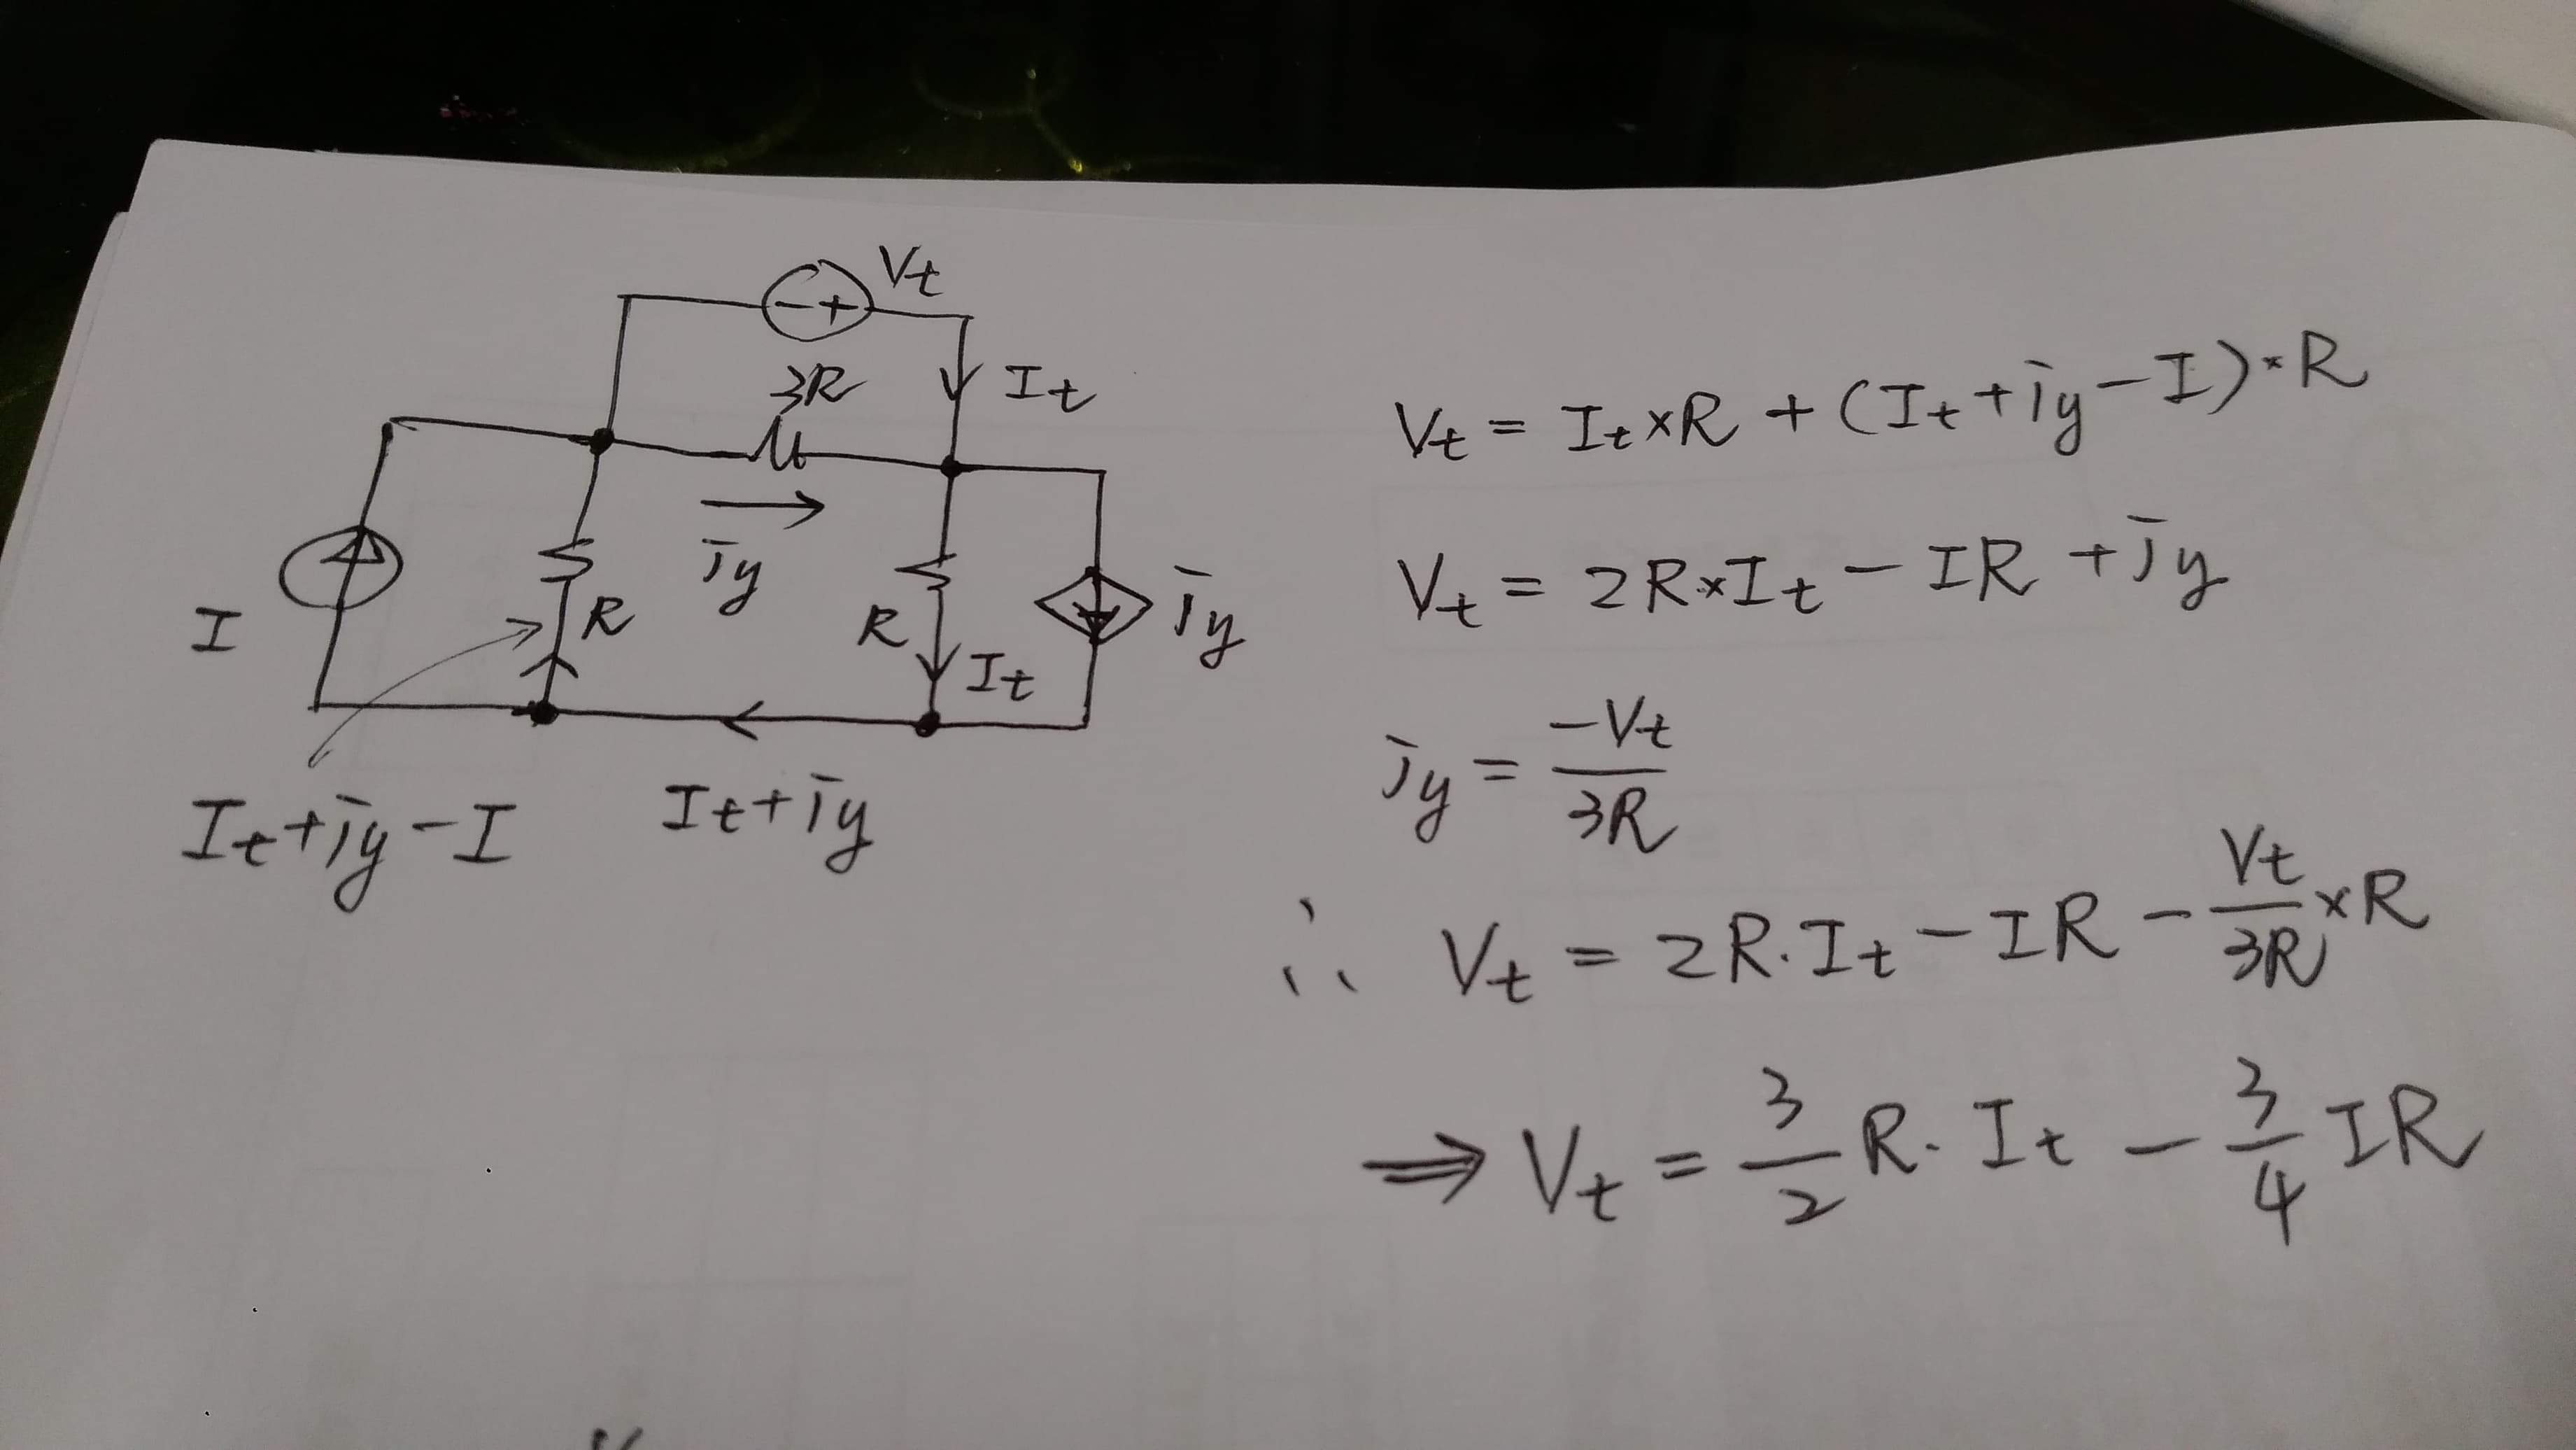 Vt
- +
3R
It
iy
I
R
R
It
iy
It+iy-I
It+iy
Vt = It×R + (It+iy-I)×R
Vt = 2R×It - IR + iy
iy = -Vt/3R
∴ Vt = 2R·It - IR - Vt/3R ×R
⇒ Vt = 3/2 R·It - 3/4 IR